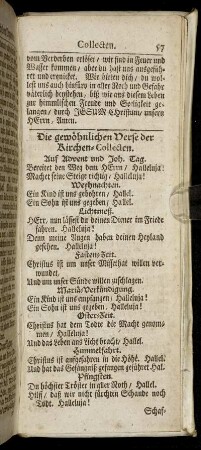 Collecten. 57
vom Verderben erlöset, wir sind in Feuer und
Wasser kommen, aber du hast uns ausgefüh-
ret und erquicket. Wir bitten dich, du wol-
lest uns auch hinfüro in aller Noth und Gefahr
väterlich beystehen, biß wir aus diesem Leben
zur himmlischen Freude und Seligkeit ge-
langen, durch JESUM Christum, unsern
HErrn, Amen.
Die gewöhnlichen Verse der
Kirchen-Collecten.
Auf Advent und Joh. Tag.
Bereitet den Weg dem HErrn, Halleluja!
Machet seine Steige richtig, Halleluja!
Weyhnachten.
Ein Kind ist uns gebohren, Hallel.
Ein Sohn ist uns gegeben, Hallel.
Lichtmess.
HErr, nun lässest du deinen Diener im Friede
fahren. Halleluja!
Denn meine Augen haben deinen Heyland
gesehen. Halleluja!
Fasten-Zeit.
Christus ist um unser Missethat willen ver-
wundet,
Und um unser Sünde willen zuschlagen.
Mariä-Verkündigung.
Ein Kind ist uns empfangen, Halleluja!
Ein Sohn ist uns gegeben. Halleluja!
Oster-Zeit.
Christus hat dem Tode die Macht genom-
men, Halleluja!
Und das Leben ans Licht bracht, Hallel.
Himmelfahrt.
Christus ist aufgefahren in die Höhe. Hallel.
Und hat das Gefängniß gefangen geführet. Hal.
Pfingsten.
Du höchster Tröster in aller Noth, Hallel.
Hilff, daß wir nicht fürchten Schande noch
Todt. Halleluja!
Schaf-